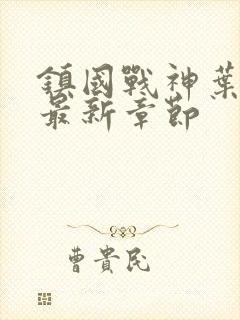 鎮國戰神葉
最新章節
曹貴民